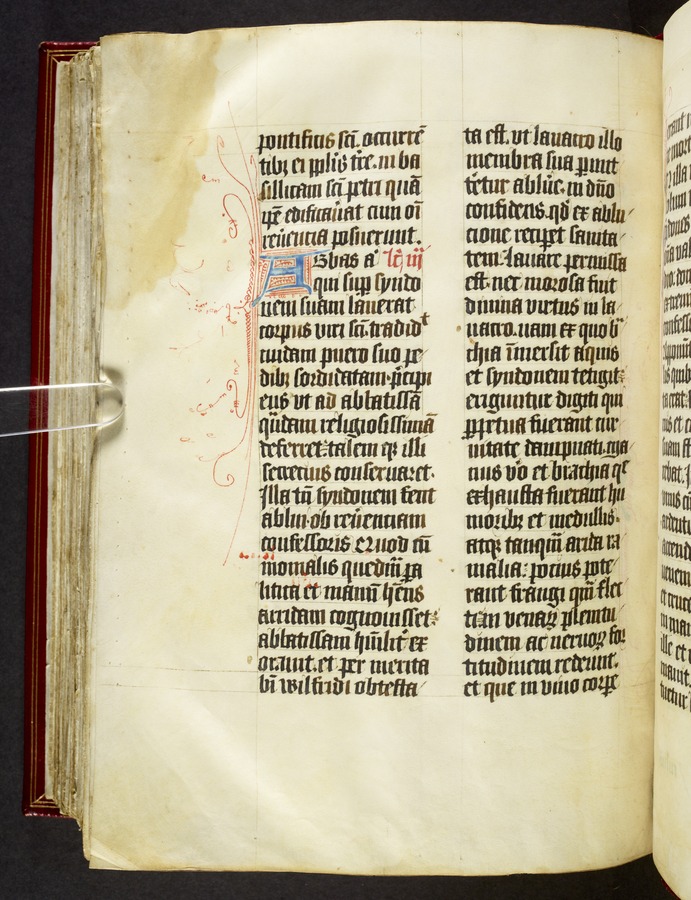 pontificis sci. occurrē
tibꝫ ei pplis tre. in ba
sillicam sci petri quā
ipe edificauat cum oī
reuēncia posuerunt.
Abbas a lc iii
qui sup syndo
nem suam lauerat
corpus viri sci. tradidt
cuidam puero suo pe
dibꝫ sordidatam. p̄cipi
ens vt ad abbatissā
qūdam religiosissimā
deferret. talem qꝫ illi
secretius conseruaret.
Illa tn̄ syndonem fecit
ablui. ob reuēnciam
confessoris Quod cū
monialis quedam pa
litica et manū hēns
arridam cognouisset:
abbatissam hūilit ex
orauit. et per merita
bī wilfridi obtesta
ta est. vt lauacro illo
membra sua pmit
tetur abluē. in dn̄o
confidens. qd ex ablu
cione recipet sanita
tem. lauare permissa
est. nec morosa fuit
diuina virtus in la
uacro. nam ex quo b
chia īmersit aquis
et syndonem tetigit:
eriguntur digiti qui
ppetua fuerant cur
uitate dampnati. ma
nus vo et brachia qe
exhausta fuerant hu
moribꝫ et medullis.
atqꝫ tanquam arida ra
malia: pocius pote
rant frangi quam flec
ti. in venaꝝ plenitu
dinem ac neruoꝝ for
titudinem redeunt.
et que in viuo corpe